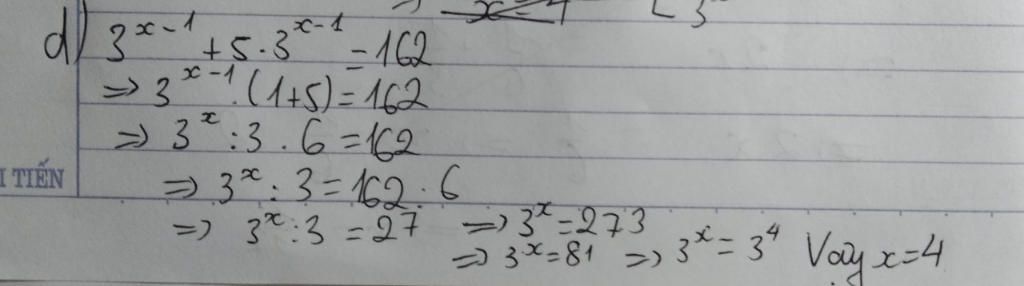 d) 3^{x-1} + 5 · 3^{x-1} = 162
=> 3^{x-1} . (1+5) = 162
=> 3^x : 3 . 6 = 162
I TIẾN
=> 3^x : 3 = 162 : 6
=> 3^x : 3 = 27 => 3^x = 27 3
=> 3^x = 81 => 3^x = 3^4 Vậy x = 4